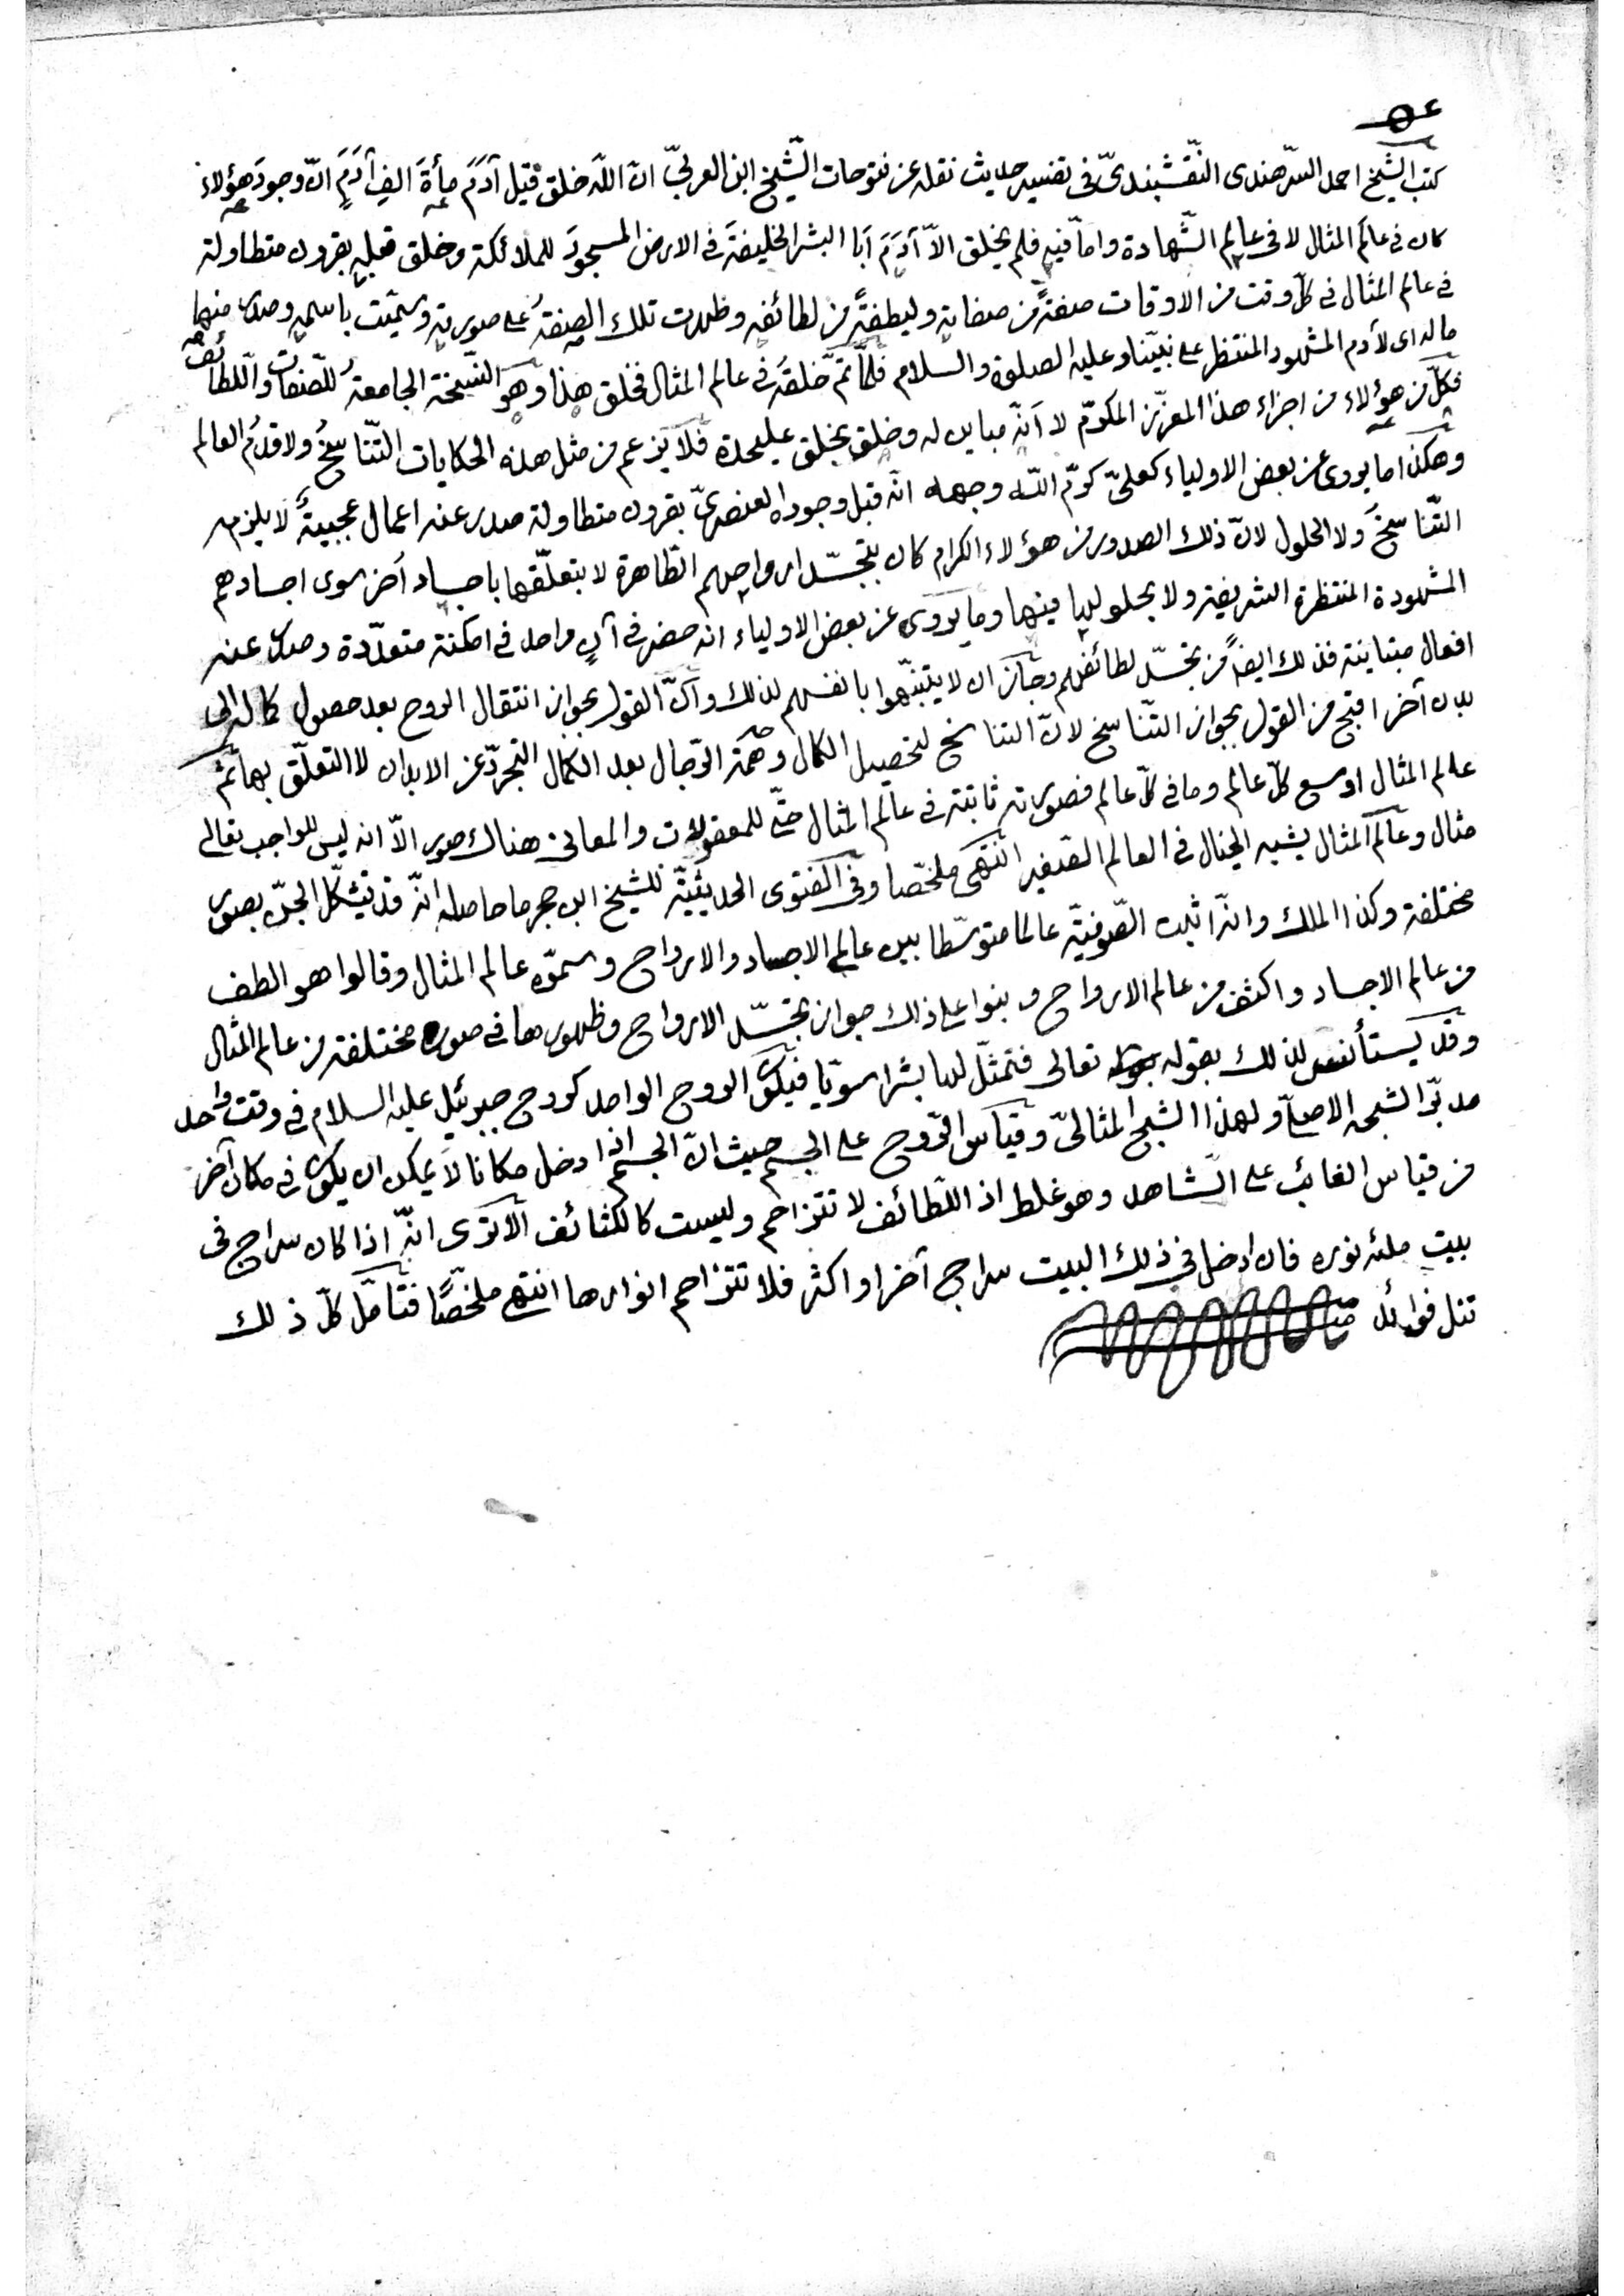 كتب الشيخ احمد السرهندى النقشبندىّ فى تفسير حديث نقله عن فتوحات الشيخ ابن العربىّ انّ اللّه خلق قبل آدَمَ مأةَ الفِ آدَمٍ انّ وجودَ هؤلاءِ
كان فى عالَم المثال لا فى عالِم الشّهادة وامّا فيه فلم يخلق الاّ آدَمَ اَبَا البشر الخليفةَ فى الارض المسجودَ للملائكة وخلق قبله بقرون متطاولة
فى عالم المثال فى كلّ وقت من الاوقات صفةً من صفاته ولطيفةً من لطائفه وظهرت تلك الصفةُ على صورته وسمّيت باسمه وصدر منها
ما له اى لآدم المشهود المنتظر على نبيّنا وعليه الصلوة والسلام فلمّا تمّ خلقُه فى عالم المثال فخلق هذا وهو النّسخة الجامعةُ للصّفات واللّطائف
فكلّ من هؤلاء من اجزاء هذا المعزّز المكرّم لا انّه مباين له وخلق بخلق عليحدة فلا يزعم من مثل هذه الحكايات التّناسخُ ولا قدمُ العالم
وهكذا ما يروى عن بعض الاولياء كعلىّ كرّم اللّه وجهه انّه قبل وجوده العنصرىّ بقرون متطاولة صدر عنه اعمال عجيبةٌ لا يلزم
التّناسخَ ولا الحلول لانّ ذلك الصدور من هؤلاء الكرام كان بتجسّد ارواحهم الطّاهرة لا بتعلّقها باجساد اُخر سوى اجسادهم
المشهودة المنتظرة الشريفة ولا بحلولها فيها وما يروى عن بعض الاولياء انه حضر فى آن واحد فى امكنة متعدّدة وصدر عنه
افعال متباينة فذلك ايضاً من تجسّد لطائفهم وجاز ان لا يتنبّهوا بانفسهم لذلك وانّ القول بجواز انتقال الروح بعد حصول كماله الى
بدن آخر اقبح من القول بجواز التّناسخ لانّ التناسخ لتحصيل الكمال وهمّة الرّجال بعد الكمال التّجرّد عن الابدان لا التعلّق بها ثمّ
عالم المثال اوسع كلّ عالم وما فى كلّ عالم فصورته ثابتة فى عالم المثال حتّى للمعقولات والمعانى هناك صور الاّ انه ليس للواجب تعالى
مثال وعالم المثال يشبه الخيال فى العالم الصغير انتهى ملخّصا وفى الفتوى الحديثيّة للشيخ ابن حجر ما حاصله انّه قد تيشكّل الجنّ بصور
مختلفة وكذا الملك وانّه اثبت الصّوفيّة عالما متوسّطا بين عالم الاجساد والارواح وسمّوه عالم المثال وقالوا هو الطف
من عالم الاجساد واكثف من عالم الارواح وبنوا على ذلك جواز تجسّد الارواح وظهورها فى صوره مختلفة من عالم المثال
وقد يستأنس لذلك بقوله تعالى فتمثّل لها بشرا سويّا فيكون الروح الواحد كروح جبرئيل عليه السلام فى وقت واحد
مدبّرا لشبحه الاصلىّ ولهذا الشبح المثالىّ وقياس الرّوح على الجسم حيث انّ الجسم اذا دخل مكانا لا يمكن ان يكون فى مكان آخر
من قياس الغائب على الشّاهد وهو غلط اذ اللّطائف لا تتزاحم وليست كالكثائف الا ترى انّه اذا كان سراج فى
بيت ملئه نوره فان ادخل فى ذلك البيت سراج آخر او اكثر فلا تتزاحم انوارها انتهى ملخّصًا فتأمّل كلّ ذلك
تنل فوائد